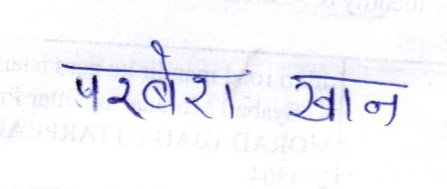 परबेश खान